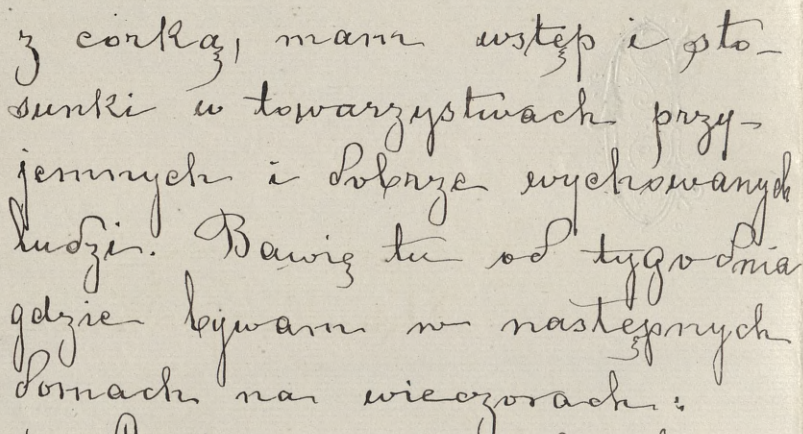 z córką, mam wstęp i sto-
sunki w towarzystwach przy-
jemnych i dobrze wychowanych
ludzi. Bawię tu od tygodnia
gdzie bywam w następnych
domach na wieczorach: